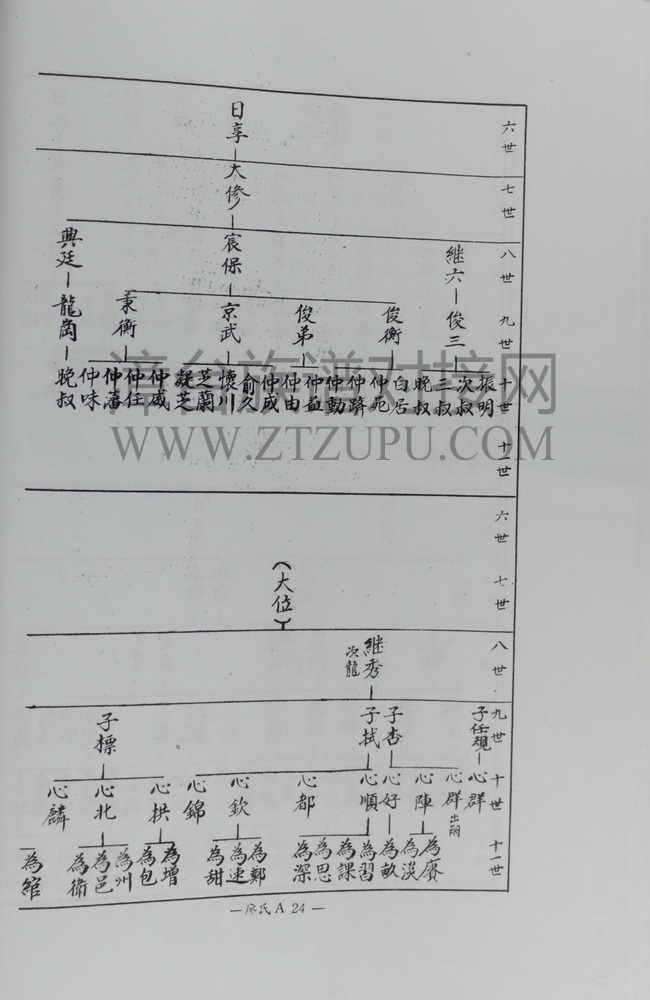 六世
七世
八世
九世
十世
十一世
日享
大修
宸保
京武
秉衡
俊弟
俊衡
继六
俊三
典廷
龍崗
振明
次叔
三叔
晚叔
白居
仲死
仲蹄
仲動
仲益
仲由
仲成
俞久
懷川
芝蘭
凝芝
仲威
仲任
仲潘
仲味
晚叔
漳台族谱对接网
WWW.ZTZUPU.COM
六世
七世
八世
九世
十世
十一世
(大位)
继秀
次龍
子任規
子杏
子拭
子標
心群
心群
出嗣
心陣
心好
心順
心都
心欽
心錦
心拱
心北
心麟
為賡
為淡
為畝
為習
為課
為思
為深
為鄭
為速
為甜
為增
為包
為州
為邑
為衛
為綰
—廖氏 A 24—